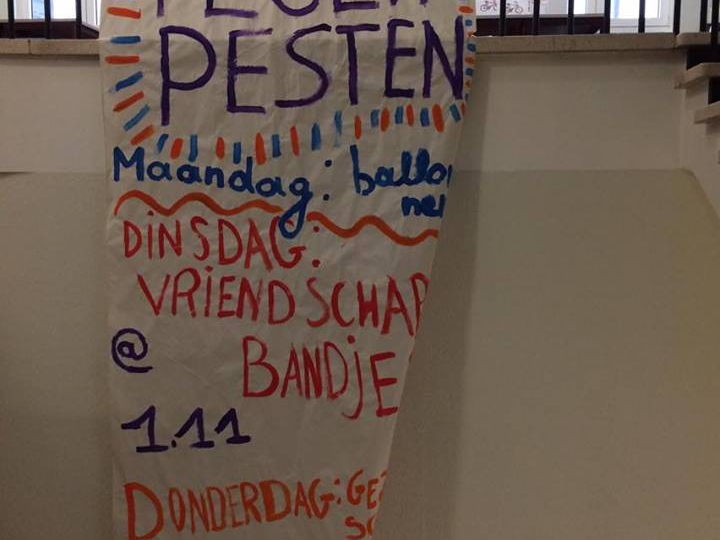 TEGEN
PESTEN
Maandag: ballo
nen
DiNSDAG:
VRiENDSCHAP
@ BANDjE
1.11
DONDERDAG: GEZ